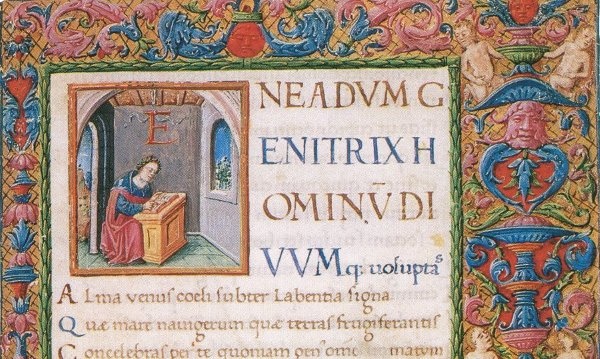 E NEADVM G
ENITRIX H
OMINV̄ DI
VVM q: uoluptas
ALma uenus coeli subter Labentia signa
Quæ mare nauigerum quæ terras frugiferantis
Concelebras per te quoniam gen' omne